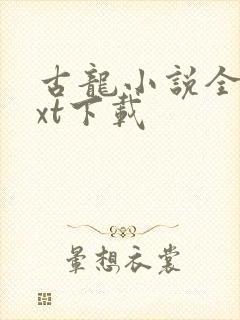 古龍小説全
xt下載
暈想衣裳